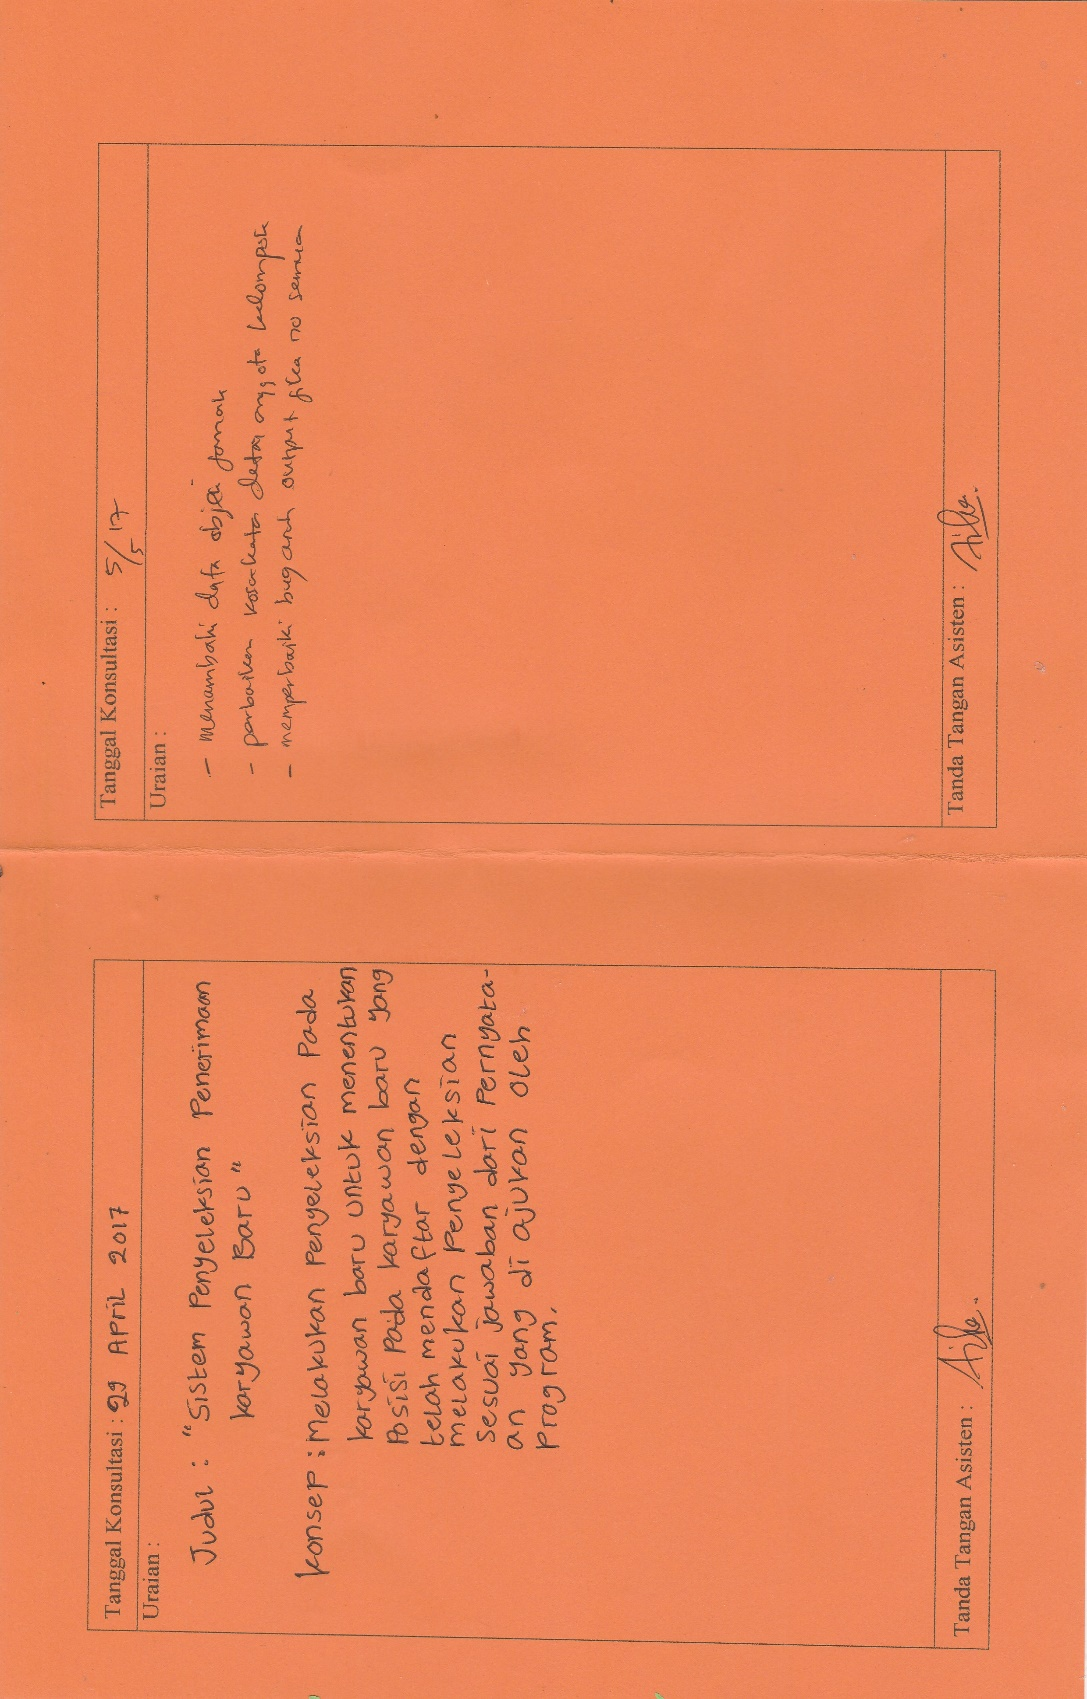 Tanggal Konsultasi : 29 APRIL 2017
Uraian :
Judul : "Sistem Penyeleksian Penerimaan
karyawan Baru"
Konsep : Melakukan Penyeleksian Pada
karyawan baru untuk menentukan
Posisi Pada karyawan baru yang
telah mendaftar dengan
melakukan Penyeleksian
sesuai jawaban dari Pernyata-
an yang di ajukan oleh
Program.
Tanda Tangan Asisten :
Tanggal Konsultasi : 5/5 17
Uraian :
- menambahi data objek jamak
- perbaikan kosakata data anggota kelompok
- memperbaiki bug arah output jika no semua
Tanda Tangan Asisten :